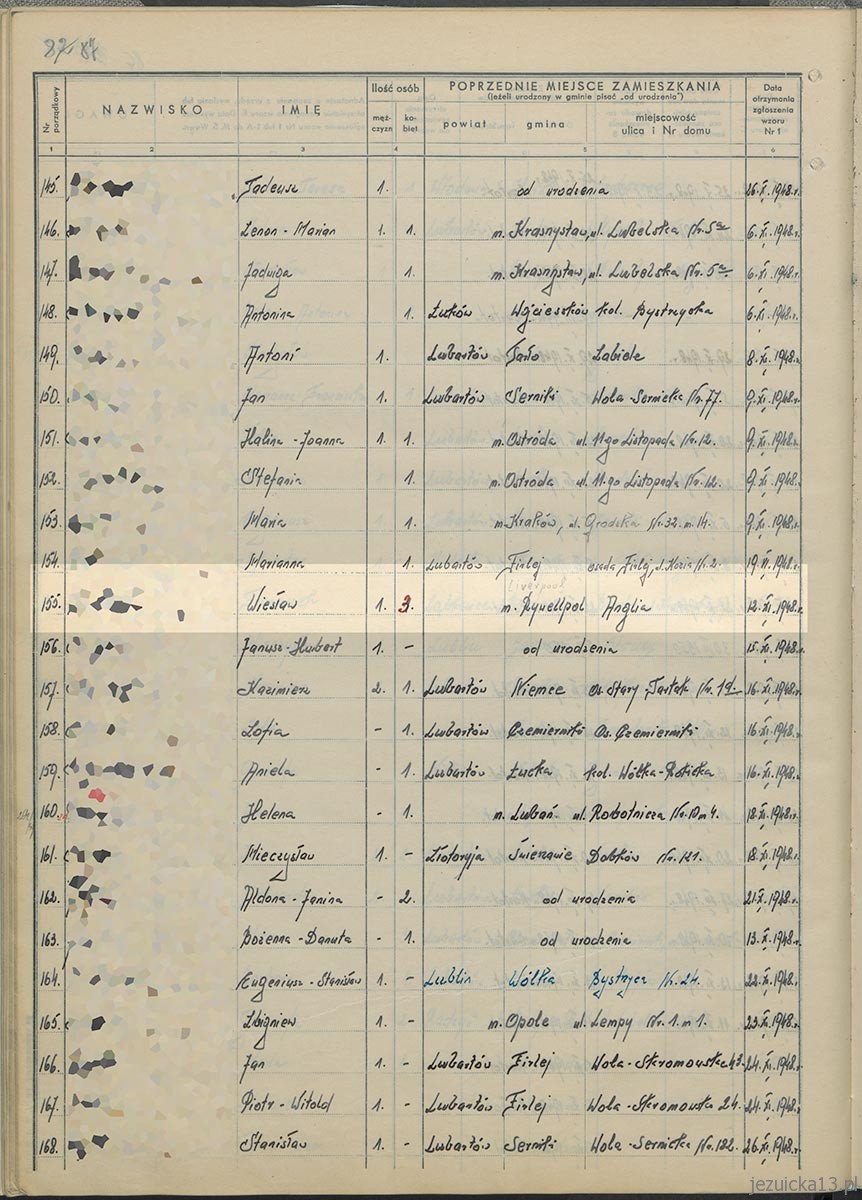 87 87
Nr porządkowy
NAZWISKO
IMIĘ
Ilość osób
męż-czyzn
ko-biet
POPRZEDNIE MIEJSCE ZAMIESZKANIA
(jeżeli urodzony w gminie pisać „od urodzenia")
powiat
gmina
miejscowość
ulica i Nr domu
Data otrzymania zgłoszenia wzoru Nr 1
1 2 3 4 5 6
145. Tadeusz 1. od urodzenia 26.X.1948.r.
146. Zenon - Marian 1. 1. m. Krasnystaw, ul. Lubelska Nr. 5a 6.XI.1948.r.
147. Jadwiga 1. m. Krasnystaw, ul. Lubelska Nr. 5a 6.XI.1948.r.
148. Antonina 1. Łuków Wojcieszków kol. Bystrzycka 6.XI.1948.r.
149. Antoni 1. Lubartów Tarło Zabiele 8.XI.1948.r.
150. Jan 1. Lubartów Serniki Wola - Sernicka Nr. 77. 9.XI.1948.r.
151. Halina - Joanna 1. 1. m. Ostróda ul. 11-go Listopada Nr. 12. 9.XI.1948.r.
152. Stefania 1. m. Ostróda ul. 11-go Listopada Nr. 12. 9.XI.1948.r.
153. Maria 1. m. Kraków, ul. Grodzka Nr. 32. m. 14. 9.XI.1948.r.
154. Marianna 1. Lubartów Firlej osada Firlej, ul. Kozia Nr. 2. 19.XI.1948.r.
Liverpool
155. Wiesław 1. 3. m. Anglia 12.XI.1948.r.
156. Janusz - Hubert 1. - od urodzenia 15.XI.1948.r.
157. Kazimierz 2. 1. Lubartów Niemce Os. Stary - Tartak Nr. 19 16.XI.1948.r.
158. Zofia - 1. Lubartów Czemierniki Os. Czemierniki 16.XI.1948.r.
159. Aniela - 1. Lubartów Łucka kol. Wólka - Rokicka 16.XI.1948.r.
160. Helena - 1. m. Lubań ul. Robotnicza Nr. 10 m 4. 18.XI.1948.r.
161. Mieczysław 1. - Złotoryja Świerzawie Dobków Nr. 121. 18.XI.1948.r.
162. Aldona - Janina - 2. od urodzenia 21.X.1948.r.
163. Bożenna - Danuta - 1. od urodzenia 13.X.1948.r.
164. Eugeniusz - Stanisław 1. - Lublin Wólka Bystrzyca Nr. 24. 22.XI.1948.r.
165. Zbigniew 1. - m. Opole ul. Lempy Nr. 1. m 1. 23.XI.1948.r.
166. Jan 1. - Lubartów Firlej Wola - Skromowska 43. 24.XI.1948.r.
167. Piotr - Witold 1. - Lubartów Firlej Wola - Skromowska 24. 24.XI.1948.r.
168. Stanisław 1. - Lubartów Serniki Wola - Sernicka Nr. 122. 26.XI.1948.r.
jezuicka13.pl